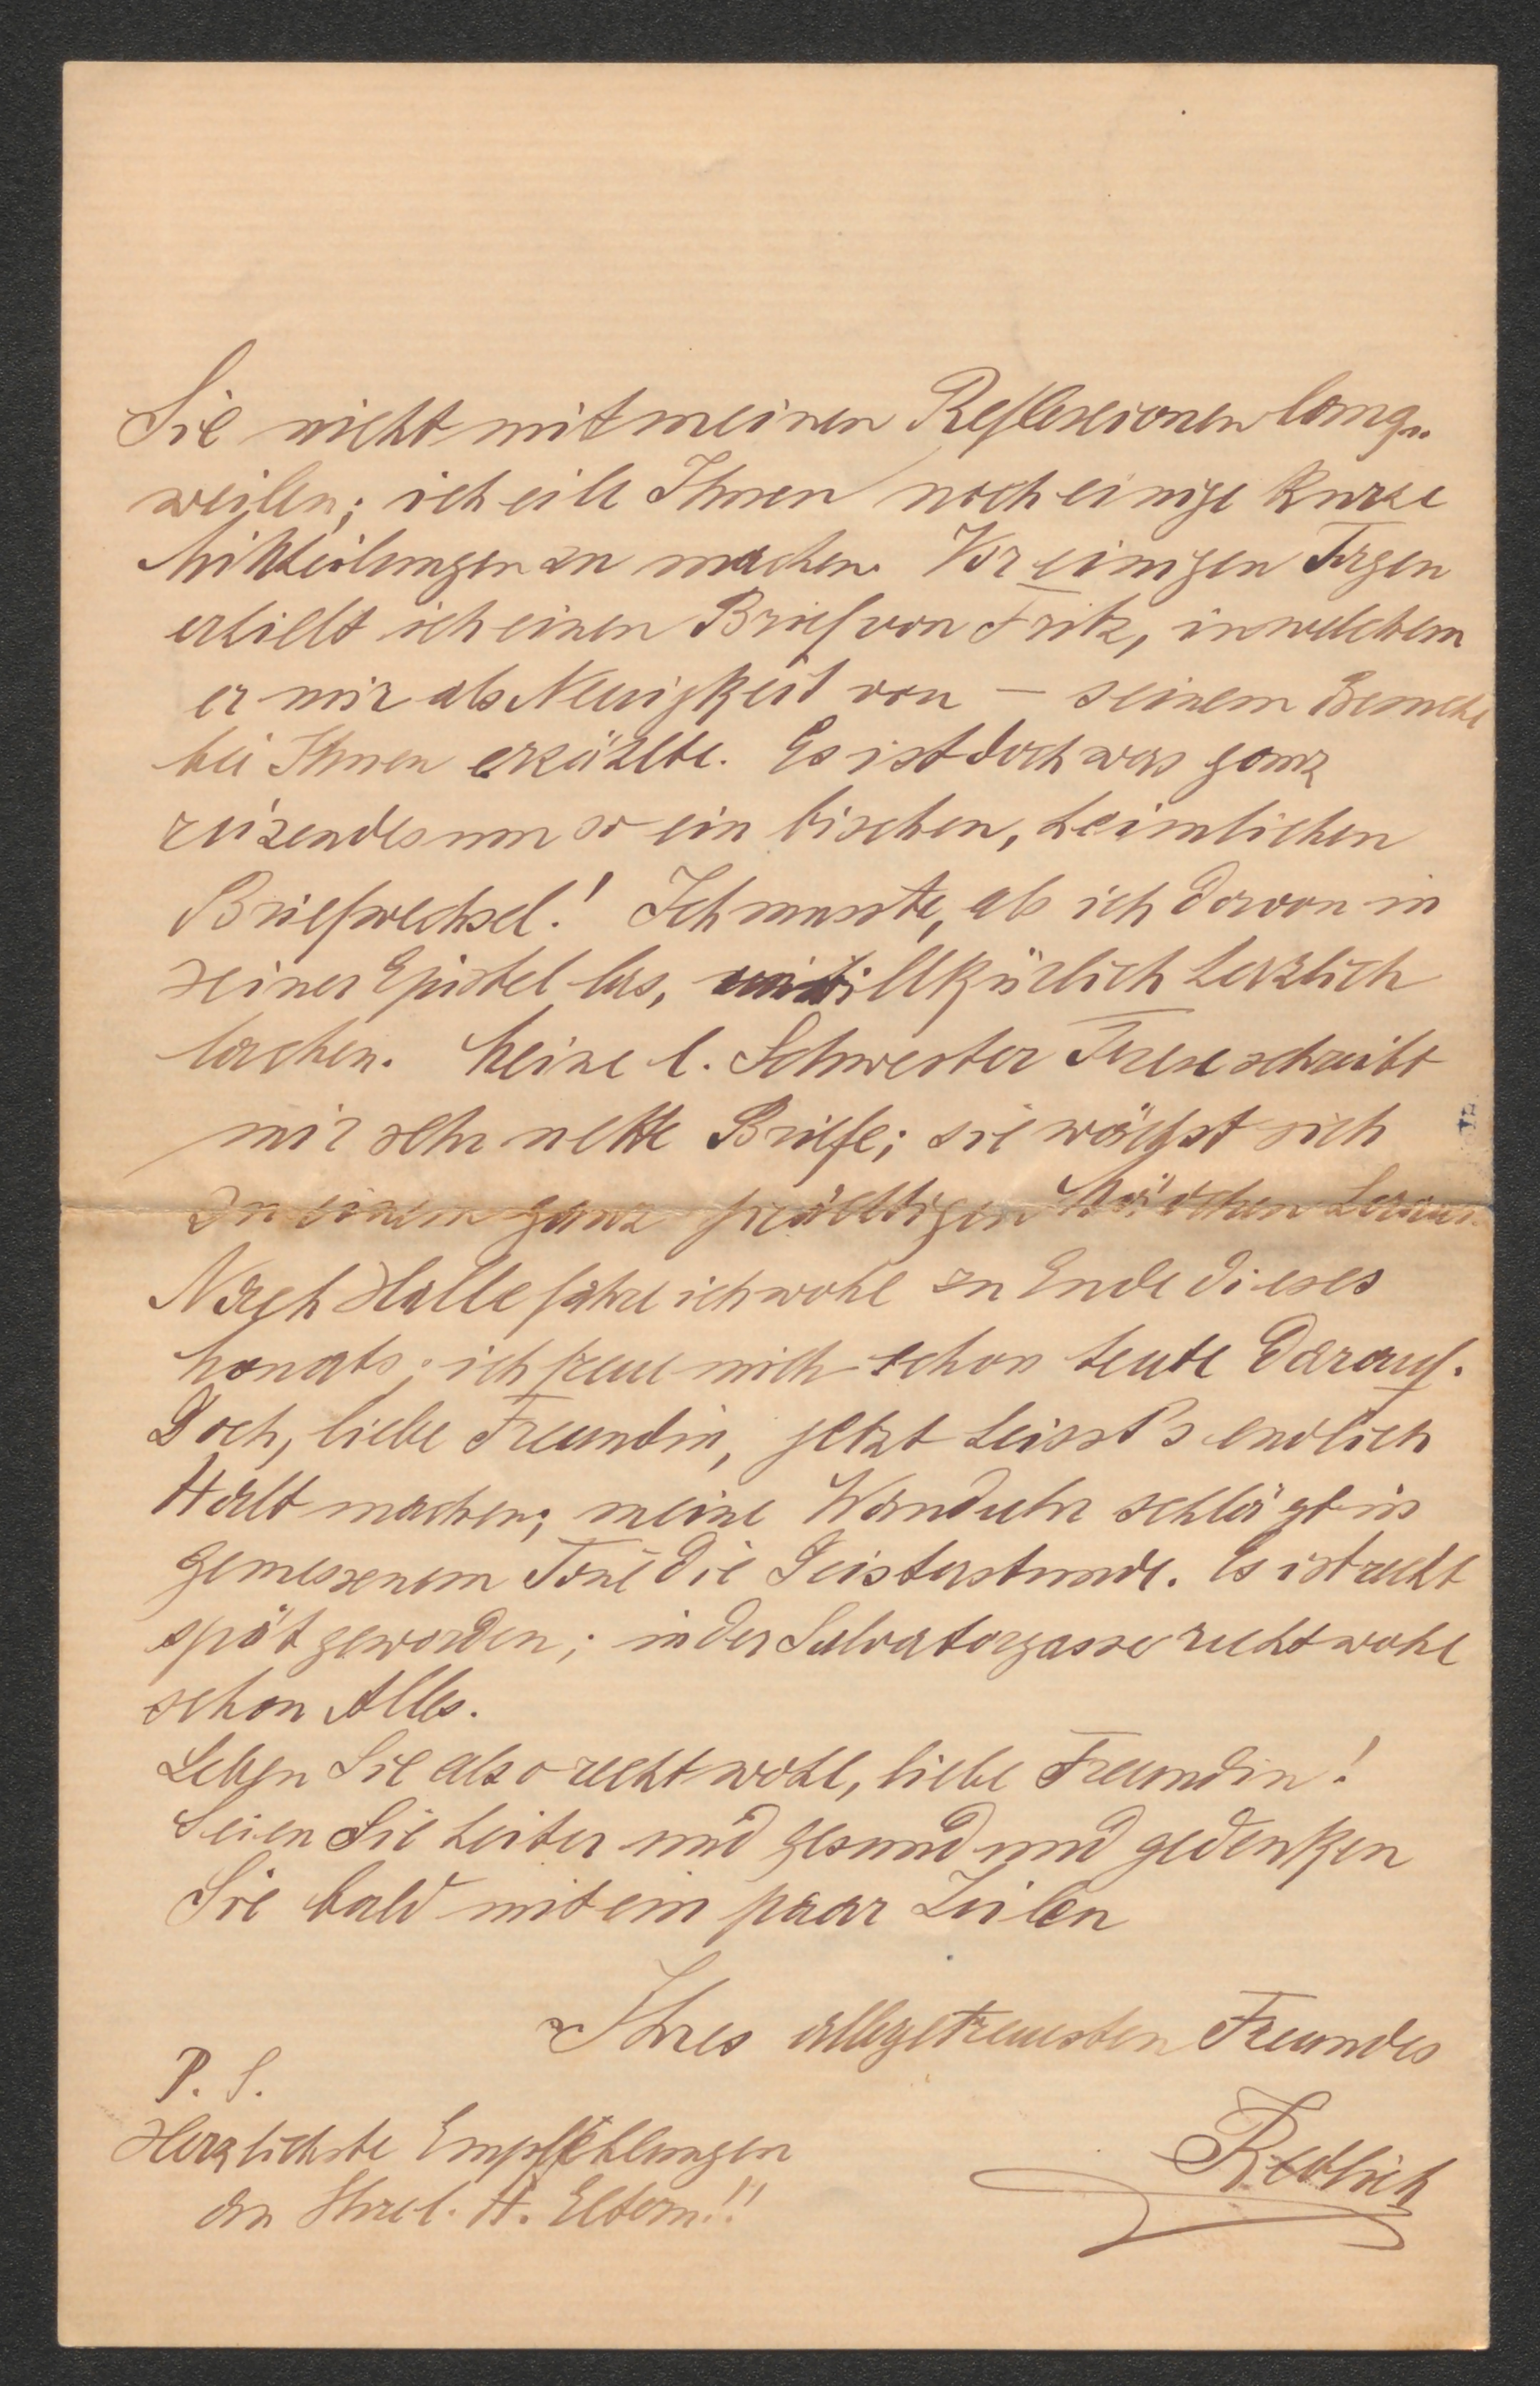 Sie nicht mit meinen Reflexionen lang-
weilen; ich eile Ihnen noch einige kurze
Mittheilungen zu machen. Vor einigen Tagen
erhielt ich einen Brief von Fritz, in welchem
er mir als Neuigkeit von – seinem Besuche
bei Ihnen erzählte. Es ist doch was ganz
reizendes um so ein bischen, heimlichen
Briefwechsel! Ich musste, als ich davon in
seiner Epistel las, unwillkürlich herzlich
lachen. Meine l. Schwester Therese schreibt
mir sehr nette Briefe; sie wächst sich
zu einem ganz prächtigen Mädchen heraus.
Nach Halle fahre ich wohl zu Ende dieses
Monats; ich freue mich schon heute darauf.
Doch, liebe Freundin, jetzt heisst's endlich
Halt machen; meine Wanduhr schlägt in
gemessenem Tone die Geisterstunde. Es ist recht
spät geworden; in der Salvatorgasse ruht wohl
schon Alles.
Leben Sie also recht wohl, liebe Freundin!
Seien Sie heiter und gesund und gedenken
Sie bald mit ein paar Zeilen
Ihres allergetreuesten Freundes
Redlich
P. S.
Herzlichste Empfehlungen
an Ihre l. H. Eltern!!